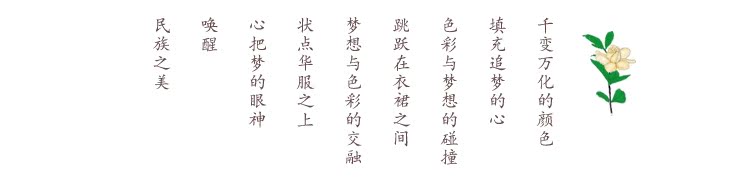 千变万化的颜色
填充追梦的心
色彩与梦想的碰撞
跳跃在衣裙之间
梦想与色彩的交融
状点华服之上
心把梦的眼神
唤醒
民族之美